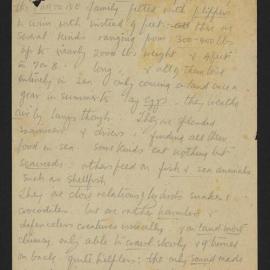 the tortoise family fitted with flippers
to swim with instead of feet. There are
several kinds ranging from 300-400 lbs
up to nearly 2000 lbs weight & 4 feet
to 7 or 8 long & altho they live
entirely in sea only coming on land once a
year in summer to lay eggs they breathe
air by lungs though. They are splendid
swimmers & divers finding all their
food in sea some kinds eat nothing but
seaweeds others feed on fish & sea animals
such as shellfish
They are close relations of lizards snakes &
crocodiles but are rather harmless &
defenceless creatures usually on land most
clumsy only able to crawl slowly & if turned
on backs quite helpless the only sound made